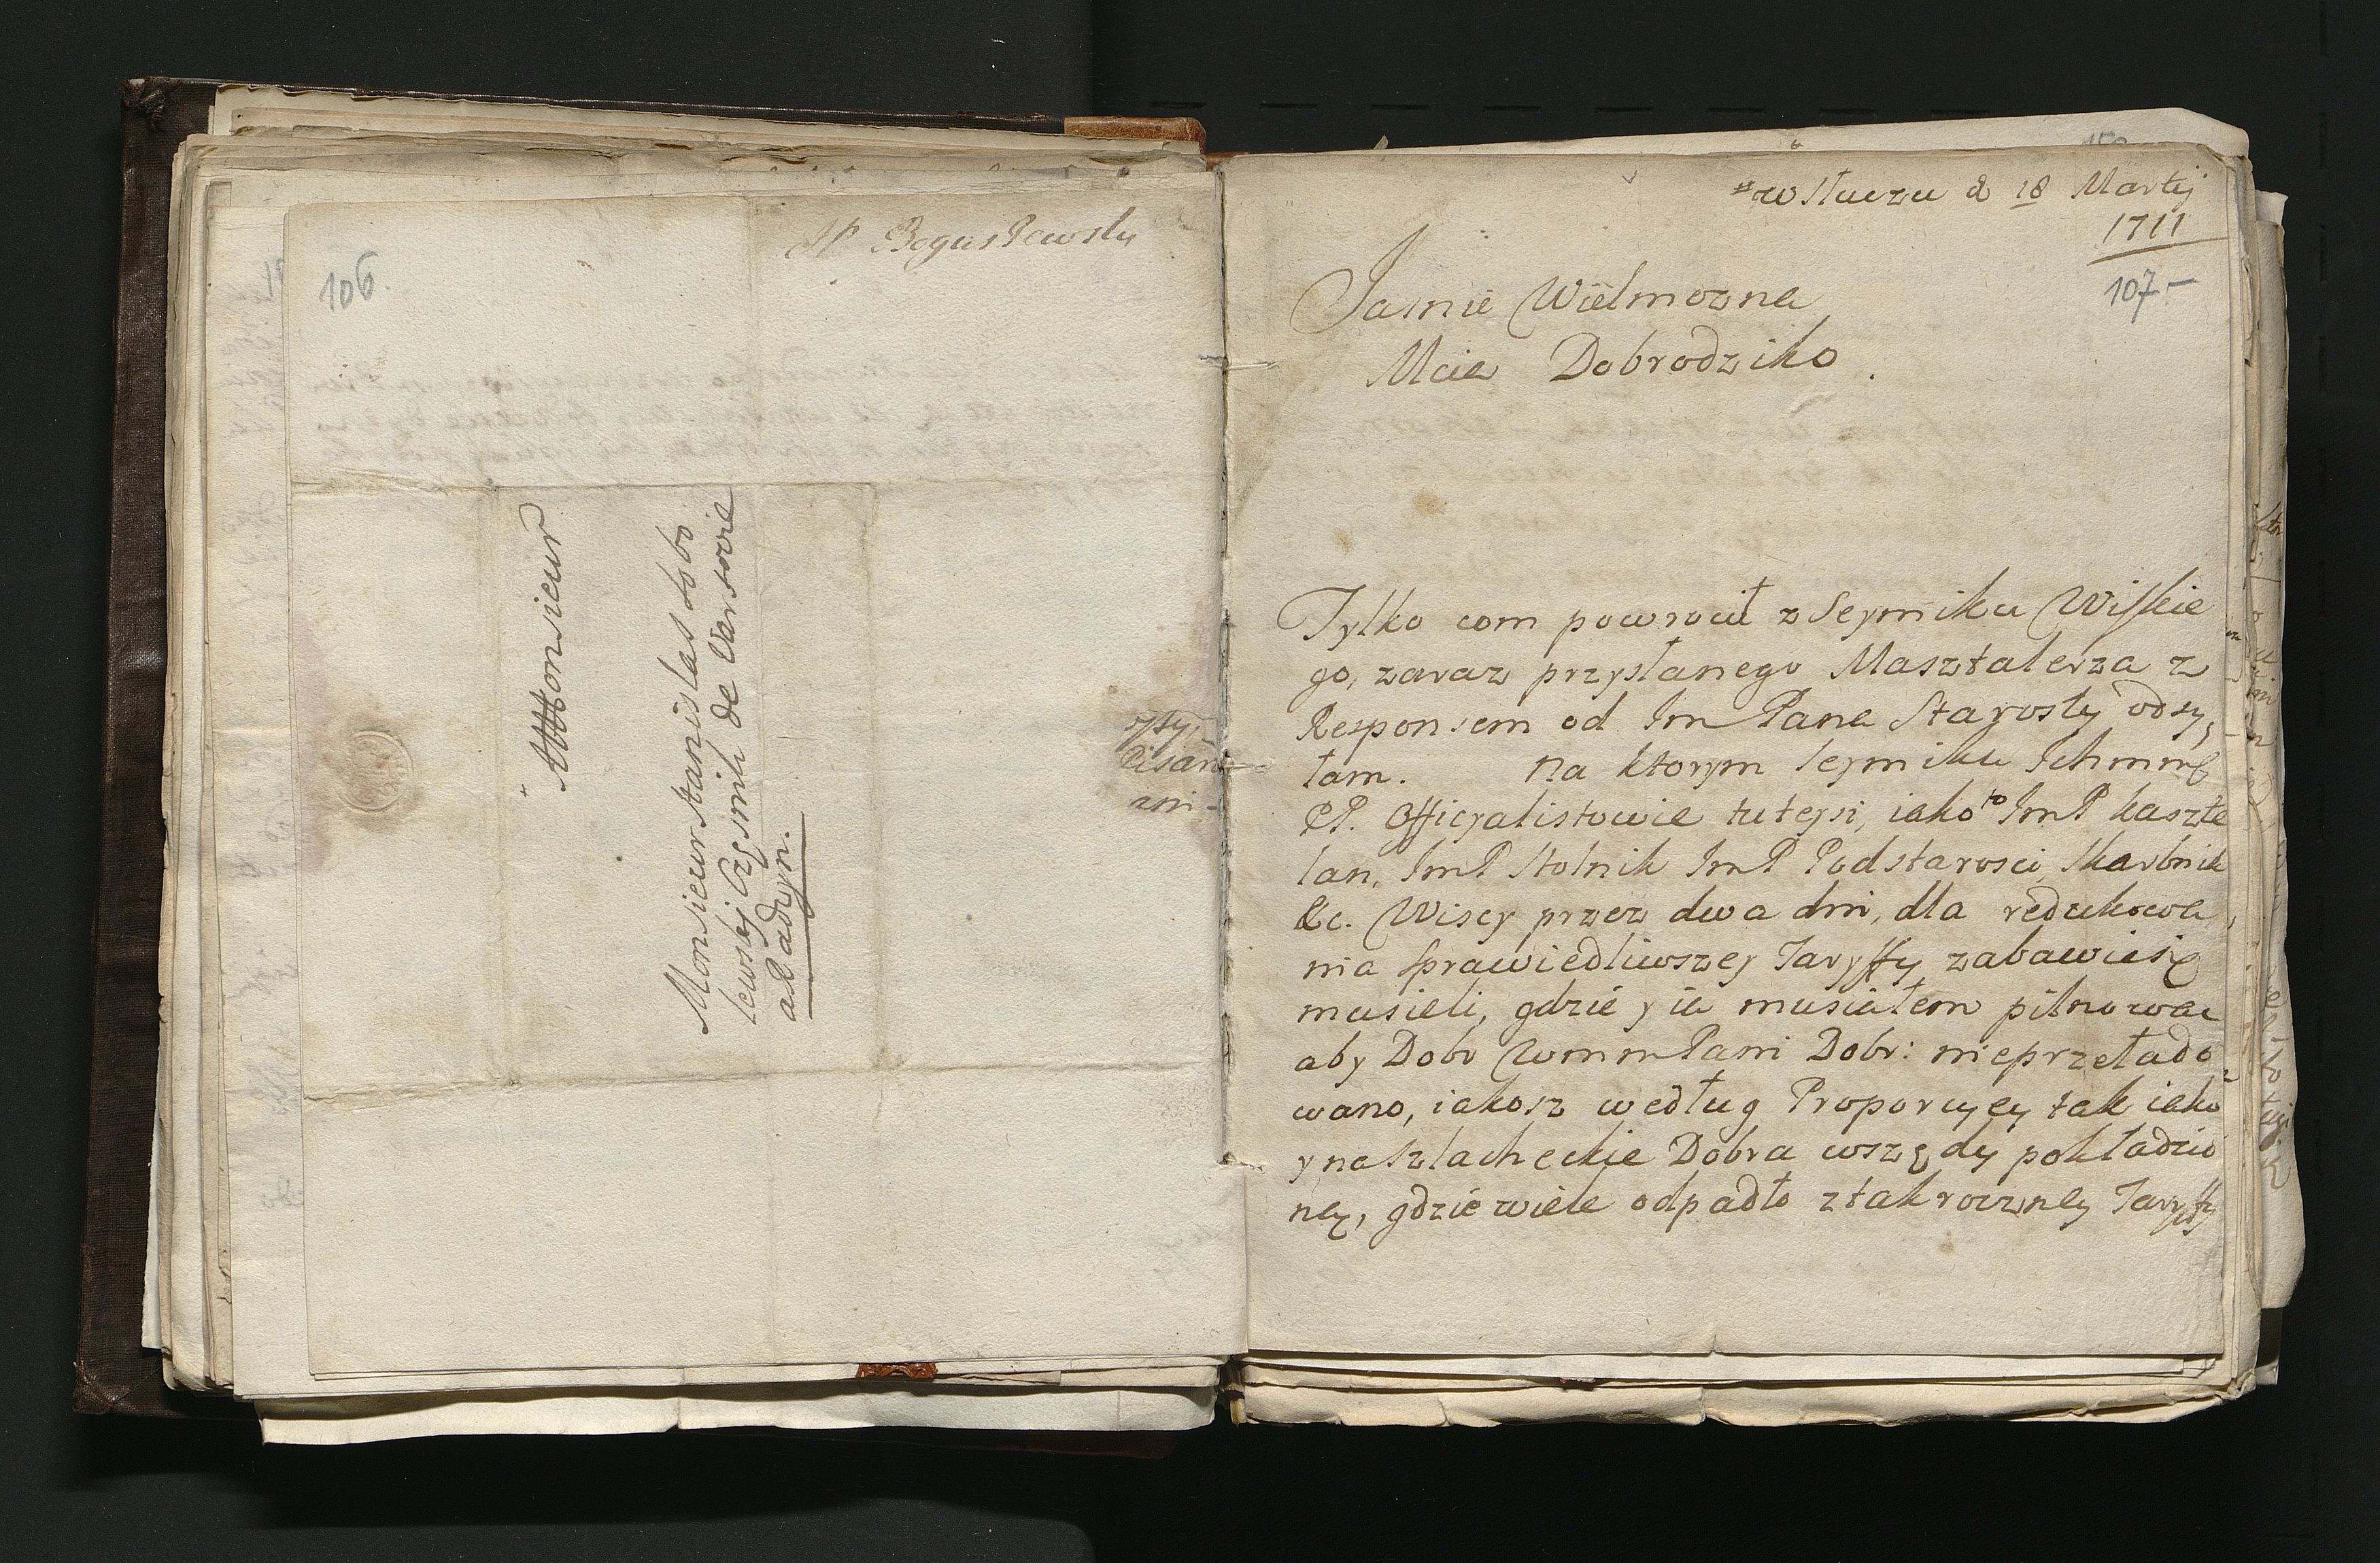 106.
JP Bogusławsky
Monsieur
Monsieur Stanislas Sobo
lewsky Czesnik de Varsovie
a Radzyn.
Pisan
zni-
w Słuczu d 18 Martij
1711
107-
Jasnie Wielmozna
Mcia Dobrodziko.
Tylko com powrocił z Seymiku Wiskie
go, zaraz przysłanego Masztalerza z
Responsem od Im Pana Starosty odsy,
łam. Na ktorym seymiku Ichmm
PP. Officyalistowie tuteysi, iako to ImP kaszte
lan, ImP Stolnik ImP Podstarosci, Skarbnik
&c. Wiscy przez dwa dni, dla redukowa,
nia sprawiedliwszey Taryffy zabawicsię
musieli, gdzie y ia musiałem pilnowac
aby Dobr WmmPani Dobr: nieprzełado
wano, iakosz według Proporcyey tak iako
y na szlacheckie Dobra wszędy pokładzio
ney, gdzie wiele odpadło z takroczney Taryffy